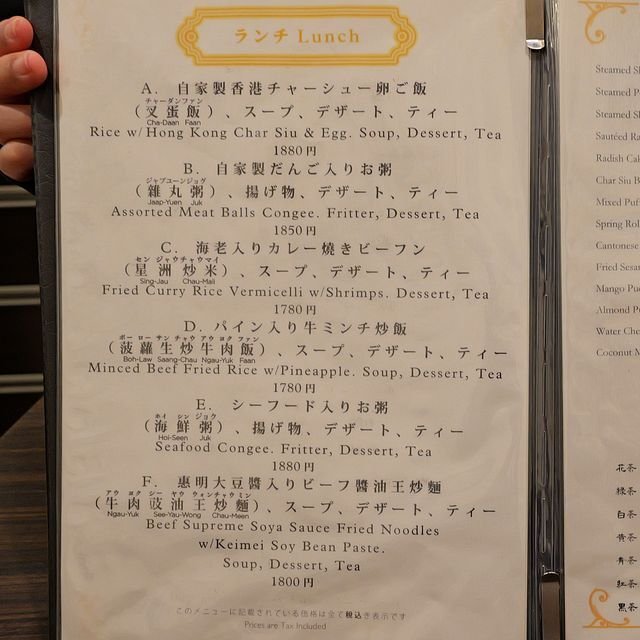 ランチ Lunch
A. 自家製香港チャーシュー卵ご飯
チャーダンファン
(叉蛋飯)、スープ、デザート、ティー
Cha-Daan Faan
Rice w/Hong Kong Char Siu & Egg. Soup, Dessert, Tea
1880円
B. 自家製だんご入りお粥
ジャプユーンジョグ
(雜丸粥)、揚げ物、デザート、ティー
Jaap-Yuen Juk
Assorted Meat Balls Congee. Fritter, Dessert, Tea
1850円
C. 海老入りカレー焼きビーフン
セン ジャウチャウマイ
(星洲炒米)、スープ、デザート、ティー
Sing-Jau Chau-Mali
Fried Curry Rice Vermicelli w/Shrimps. Dessert, Tea
1780円
D. パイン入り牛ミンチ炒飯
ボー ロー サン チャウ アウ ヨク ファン
(菠蘿生炒牛肉飯)、スープ、デザート、ティー
Boh-Law Saang-Chau Ngau-Yuk Faan
Minced Beef Fried Rice w/Pineapple. Soup, Dessert, Tea
1780円
E. シーフード入りお粥
ホイ シン ジョウ
(海鮮粥)、揚げ物、デザート、ティー
Hoi-Seen Juk
Seafood Congee. Fritter, Dessert, Tea
1880円
F. 惠明大豆醬入りビーフ醬油王炒麵
アウ ヨク シー ヤウ ウォンチャウミン
(牛肉豉油王炒麵)、スープ、デザート、ティー
Ngau-Yuk See-Yau-Wong Chau-Meen
Beef Supreme Soya Sauce Fried Noodles
w/Keimei Soy Bean Paste.
Soup, Dessert, Tea
1800円
このメニューに記載されている価格は全て税込き表示です
Prices are Tax Included
Steamed
Steamed
Steamed
Sautéed
Radish
Char Siu
Mixed
Spring
Cantonese
Fried
Mango
Almond
Water
Coconut
花茶
綠茶
白茶
黄茶
青茶
紅茶
黑茶